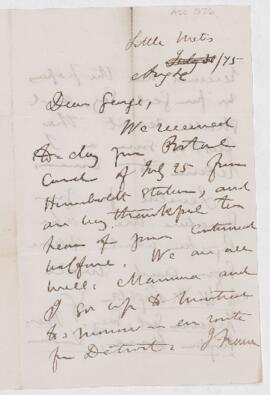 Acc 976
Little Metis
July 31/75
Augt 2
Dear George,
We received
to day your Postal
Card of July 25 from
Humboldt Station, and
are very thankful to
hear of your continued
welfare. We are all
well. Mamma and
I go up to Montreal
to morrow en route
for Detroit. I